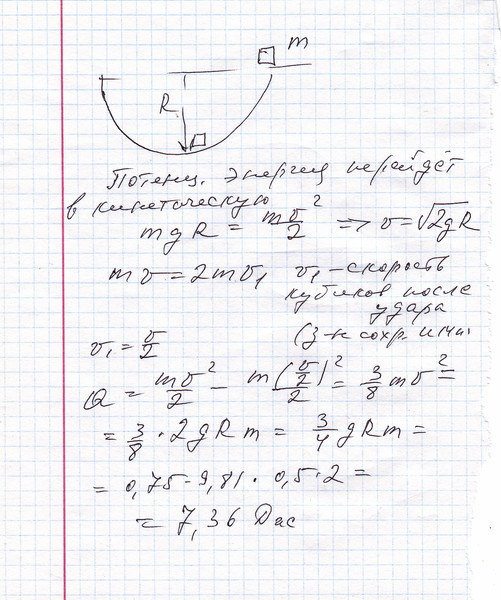 m
R
Потенц. энергия перейдёт
в кинетическую
mgR = mv²/2 => v = √2gR
mv = 2mv₁ v₁ - скорость
кубиков после
удара
(З-н сохр. имп.
v₁ = v/2
Q = mv²/2 - m(v/2)²/2 = 3/8 mv² =
= 3/8 · 2gRm = 3/4 gRm =
= 0,75 · 9,81 · 0,5 · 2 =
= 7,36 Дж